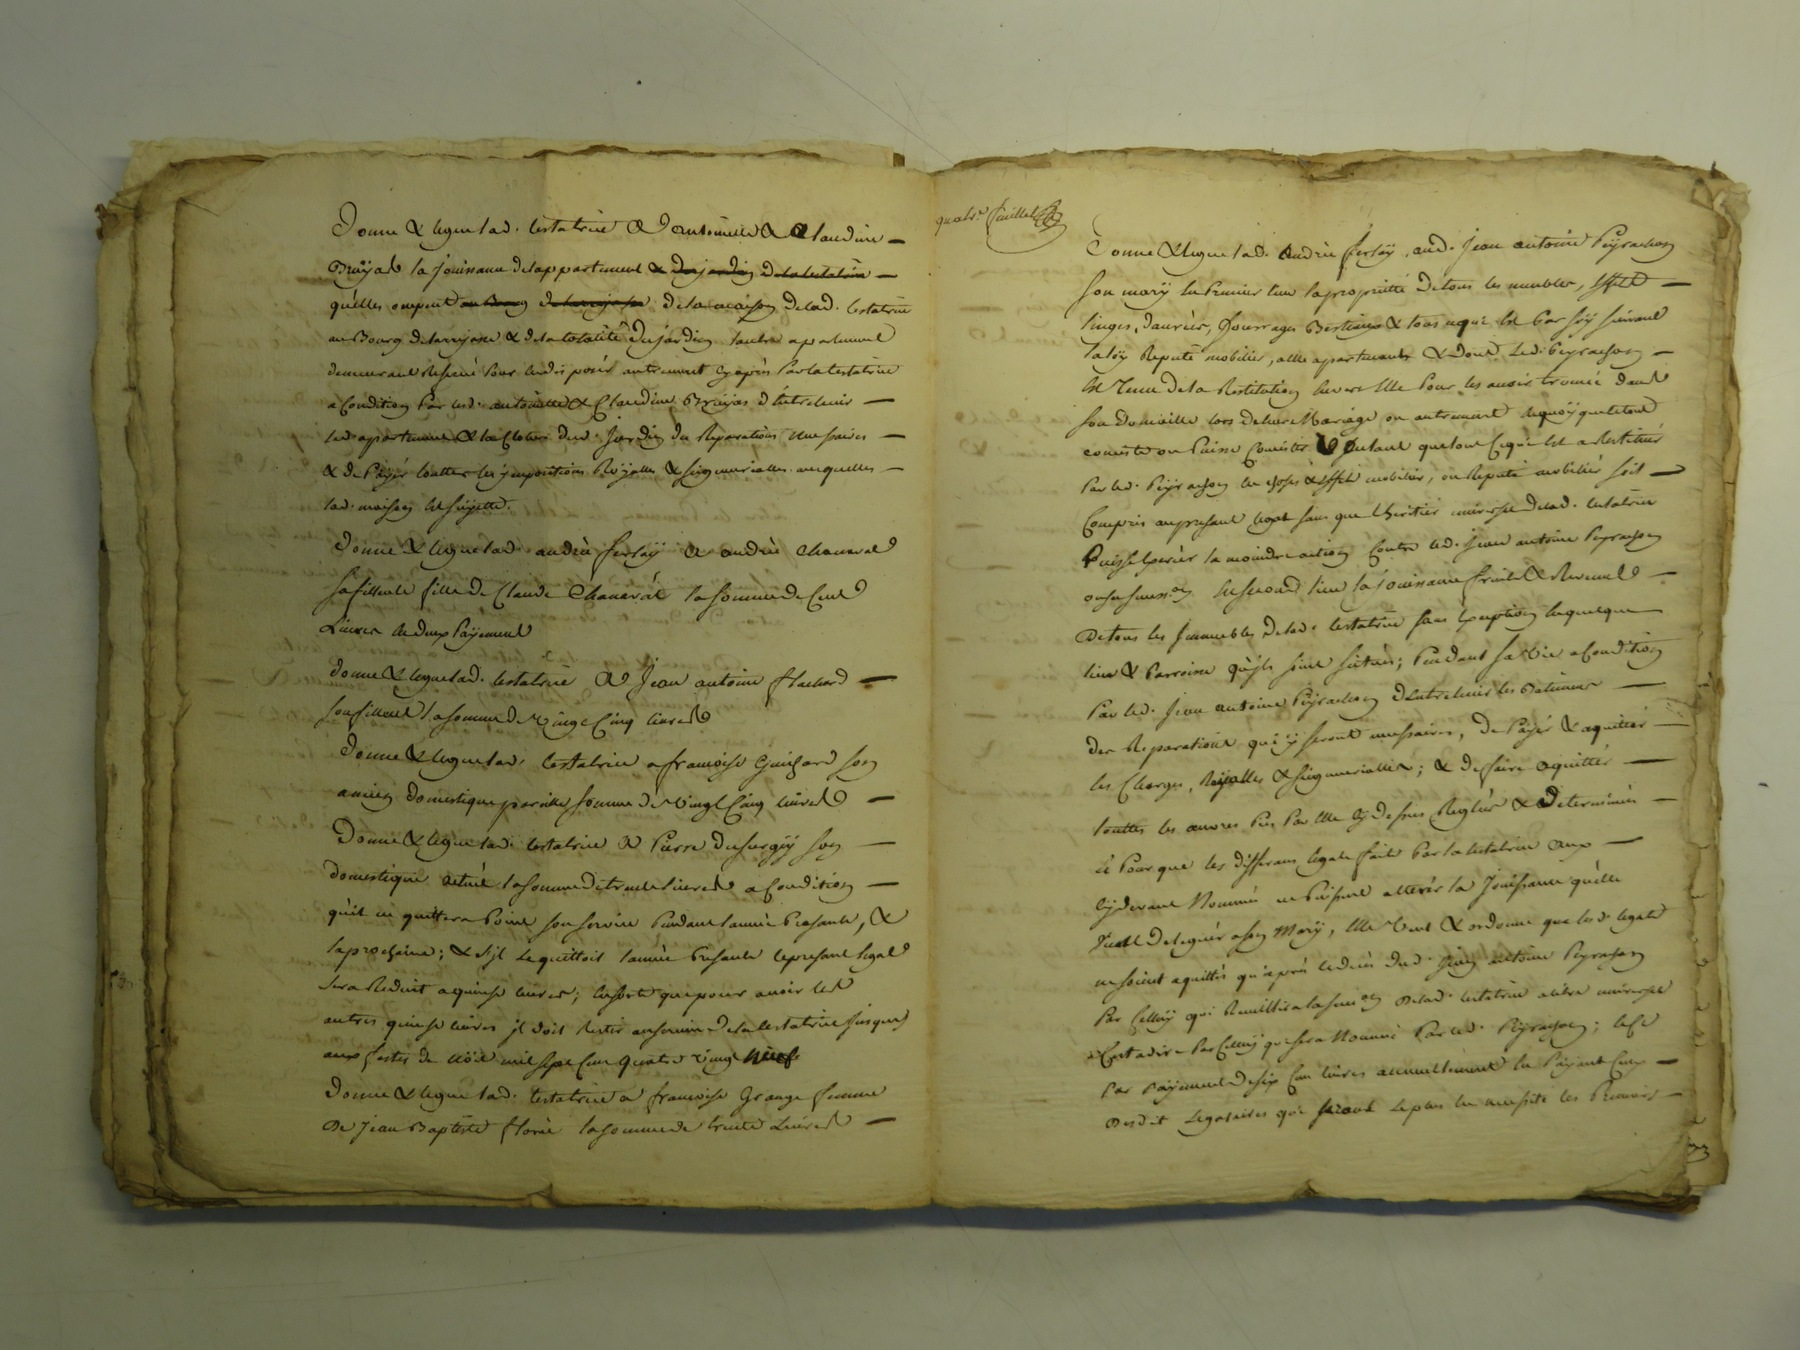 Donne & legue lad. testatrice a antoinette & Claudine
Bruyas la jouissance de lappartement & du jardin de la testatrice
quelles occupent au Bourg de larrajasse de la maison de lad. testatrice
au Bourg de larrajasse & de la totalité du jardin lautre apartement
demeurant Reservé pour en disposér autrement cy après par la testatrice
a Condition par lesd. antoinette & Claudine Bruyas d'entretenir
led. apartement & la Cloture dud. jardin des Reparations necessaires
& de payér touttes les jmpositions Royalles & seigneurialles auxquelles
lad. maison est sujette.
Donne & legue lad. andrée ferlay a andrée Chanavat
sa filleule fille de Claude Chanavat la somme de Cent
Livres en deux payements
donne & legue lad. testatrice a Jean antoine flachard
son filleul la somme de vingt Cinq livres
Donne & legue lad. testatrice a francoise Guichard son
ancien domestique pareille somme de vingt Cinq livres
Donne & legue lad. testatrice a Pierre son
domestique actuel la somme de trente livres a Condition
qu'il ne quittera point son service pendant l'année presente, &
la prochaine; & s'jl le quittoit l'année presente le present legat
sera Reduit a quinse livres; en sorte que pour avoir les
autres quinse livres jl doit Rester au service de la testatrice jusques
aux festes de noël mil sept Cent quatre vingt neuf
Donne & legue lad. testatrice a francoise Grange femme
De Jean Baptiste florie la somme de trente Livres
quatre. feuillet
Donne & legue lad. Andrée ferlay, aud. Jean antoine Peyrachon
son mary en Premier lieu la proprietté de tous les meubles, effets
linges, danrées, fourrages Bestiaux & tout ce qui est par soy suivant
la loy Reputé mobilier, a elle apartenants & dont led. Peyrachon
est tenu de la Restitution envers elle pour les avoir trouvé dans
son domicille lors de leur Mariage ou autrement en quoy que le tout
consiste ou puisse Consister voulant que tout Ce qui est a Restituér
Par led. Peyrachon en espèces & effets mobiliér, ou Reputé mobiliér soit
Compris au present legat sans que lheritiér universel de lad. testatrice
Puisse Exercér la moindre action Contre led. Jean antoine Peyrachon
en second lieu la jouissance fruits & Revenus
De tous les jmmeubles de lad. testatrice sans exception en quelque
lieu & Parroisse qu'jls soint situés; Pendant sa vie a Condition
Par led. Jean antoine Peyrachon d'entretenir les Batiments
des Reparations qui y seront necessaires, de Payér & aquittér
les Charges, Royalles & seigneurialles; & de faire aquittér
touttes les œuvres pies par elle cy dessus Reglées & determinées
Et Pour que les differans legats faits par la testatrice aux
cy devant Nommés ne Puissent alterér la Jouissance quelle
vient de leguér a son Mary, elle veut & ordonne que lesd. legats
ne soient aquittés qu'après le decès dud. Jean antoine Peyrachon
Par Celluy qui Recueillira la suc.on de lad. testatrice a titre universel
c'est a dire par Celluy qui sera Nommé par led. Peyrachon; & Ce
Par payements de six Cent livres annuellement en payant Ceux
Desdit Legataires qui seront le plus en necessité les Premiers